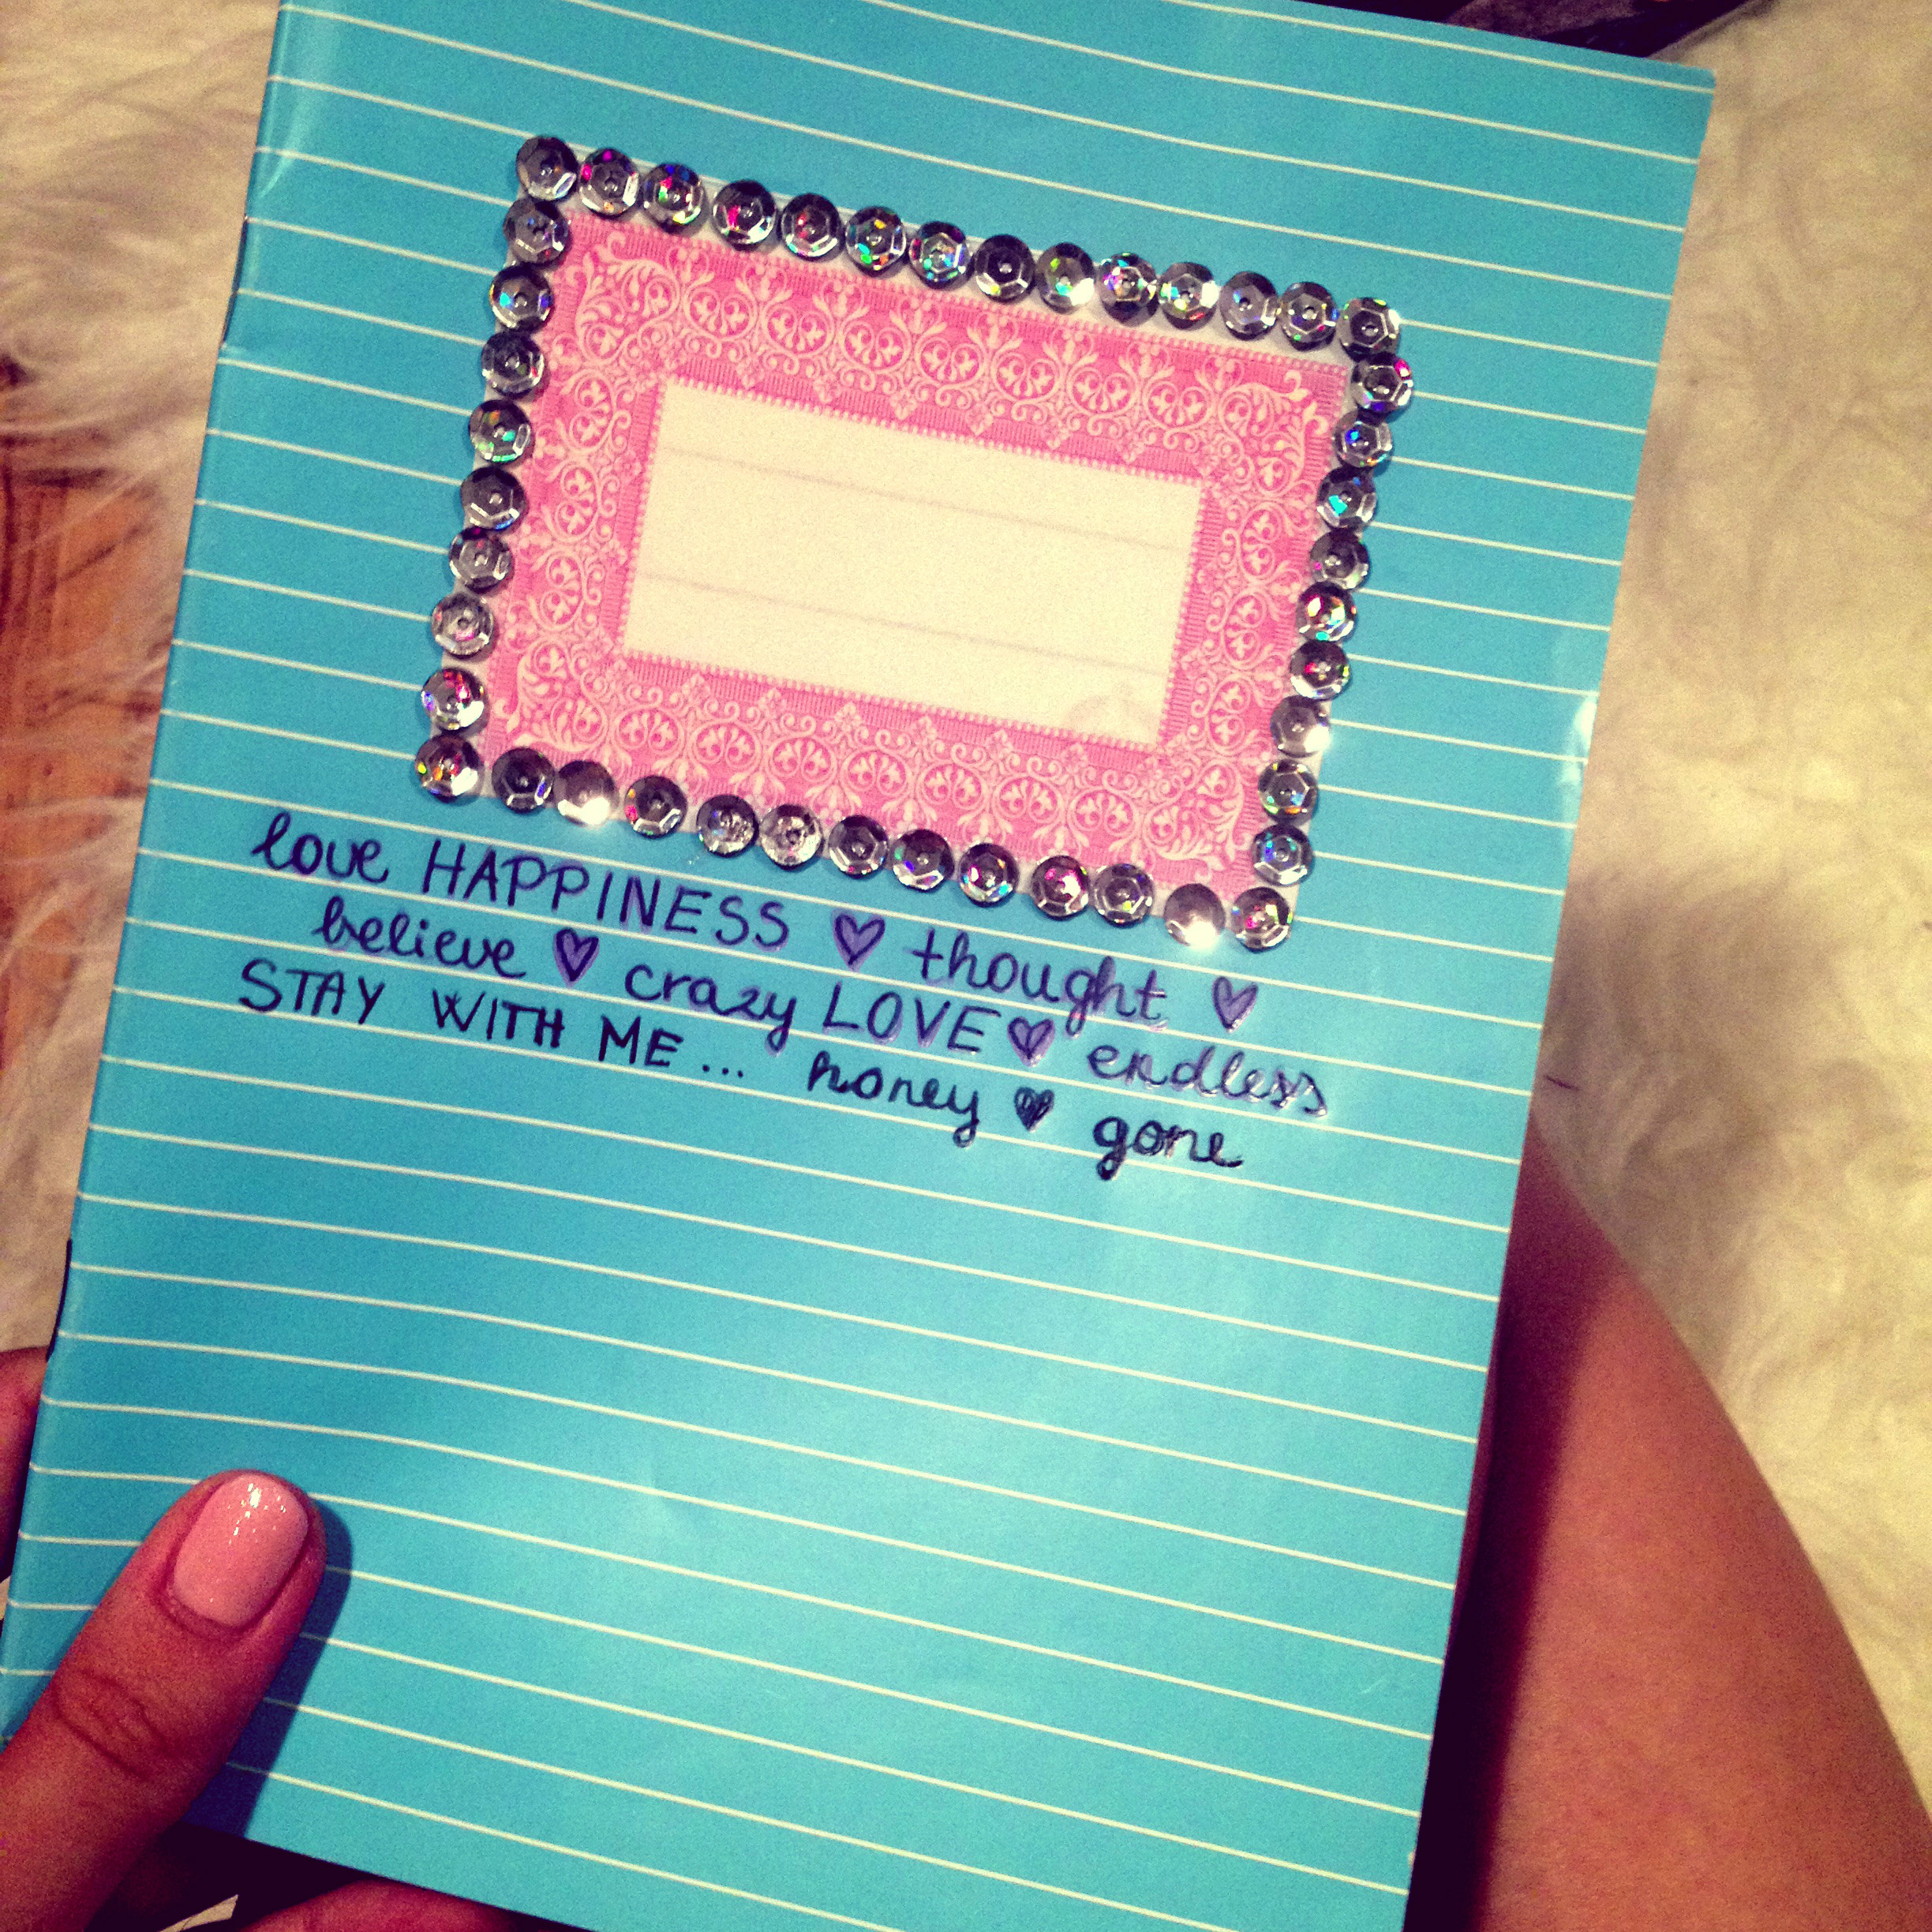 love HAPPINESS ♡ thought ♡
believe ♡ crazy LOVE ♡ endless
STAY WITH ME... honey ♥ gone